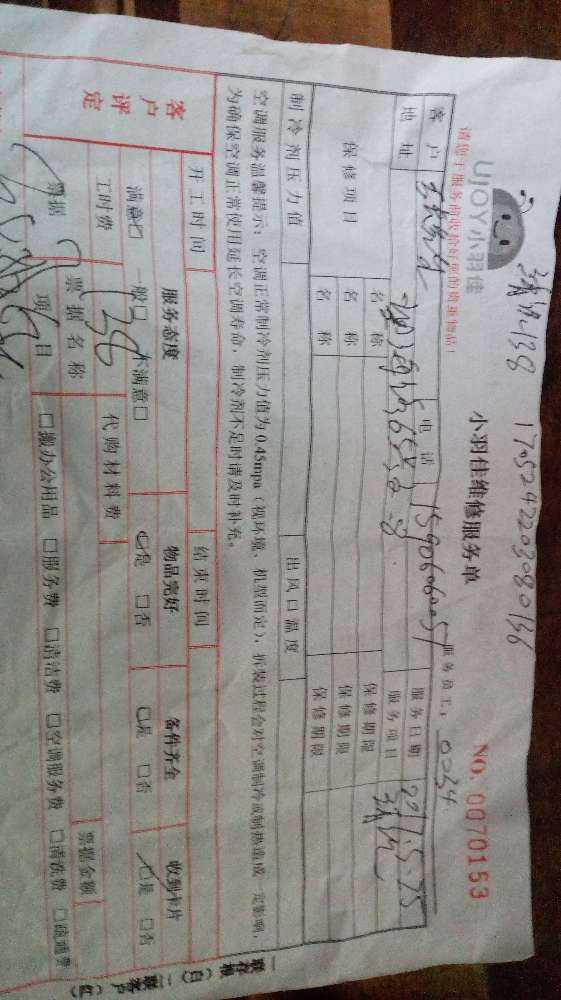 1705242203080136
UJOY小羽佳
小羽佳维修服务单
NO. 0070153
请您于服务前收拾好您的贵重物品！
服务员工：0034
客户 电话 15906060051 服务日期 2017.5.25
地址 服务项目 清洗
保修项目 名称 保修期限
名称 保修期限
名称 保修期限
制冷剂压力值 出风口温度
空调服务温馨提示：空调正常制冷剂压力值为0.45mpa（视环境、机型而定），拆装过程会对空调制冷或制热造成一定影响，
为确保空调正常使用延长空调寿命，制冷剂不足时请及时补充。
开工时间 结束时间
客户评定 服务态度 物品完好 备件齐全 收到卡片
满意□ 一般□ 不满意□ □是 □否 □是 □否 □是 □否
工时费 代购材料费
票据 票据名称 票据金额
项目 □搬办公用品 □服务费 □清洁费 □空调服务费 □清洗费 □疏通费
一联存根（白） 二联客户（红）